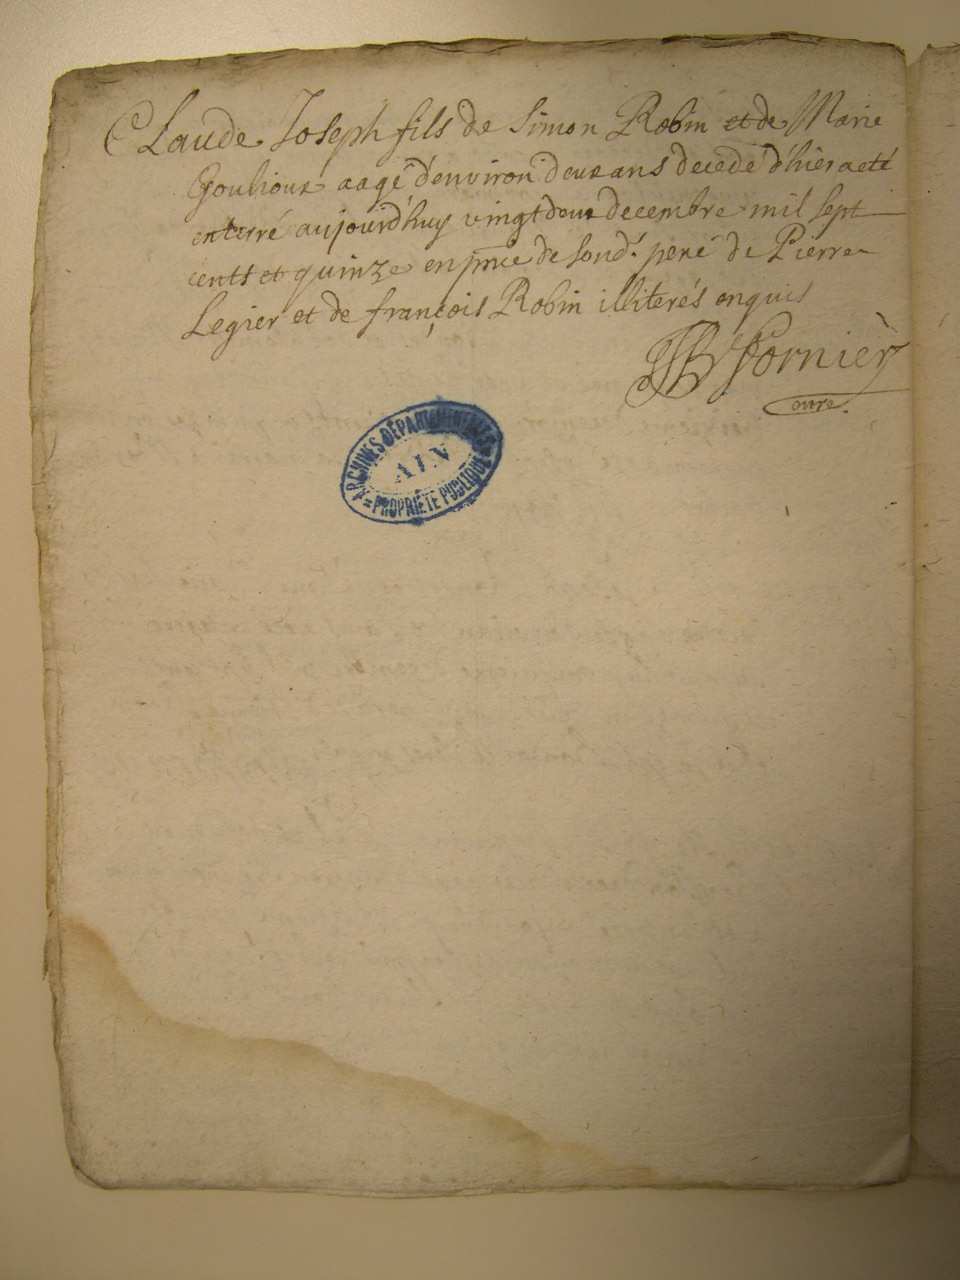 Claude Joseph fils de Simon Robin et de Marie
Goulioux aagé d'environ deux ans decedé d'hier a eté
enterré aujourd'huy vingt deux decembre mil sept
cents et quinze en pnce de sond. peré de Pierre
Legier et de françois Robin illiterés enquis
JB Fornier
curé.
ARCHIVES DÉPARTEMENTALES
AIN
PROPRIÉTÉ PUBLIQUE